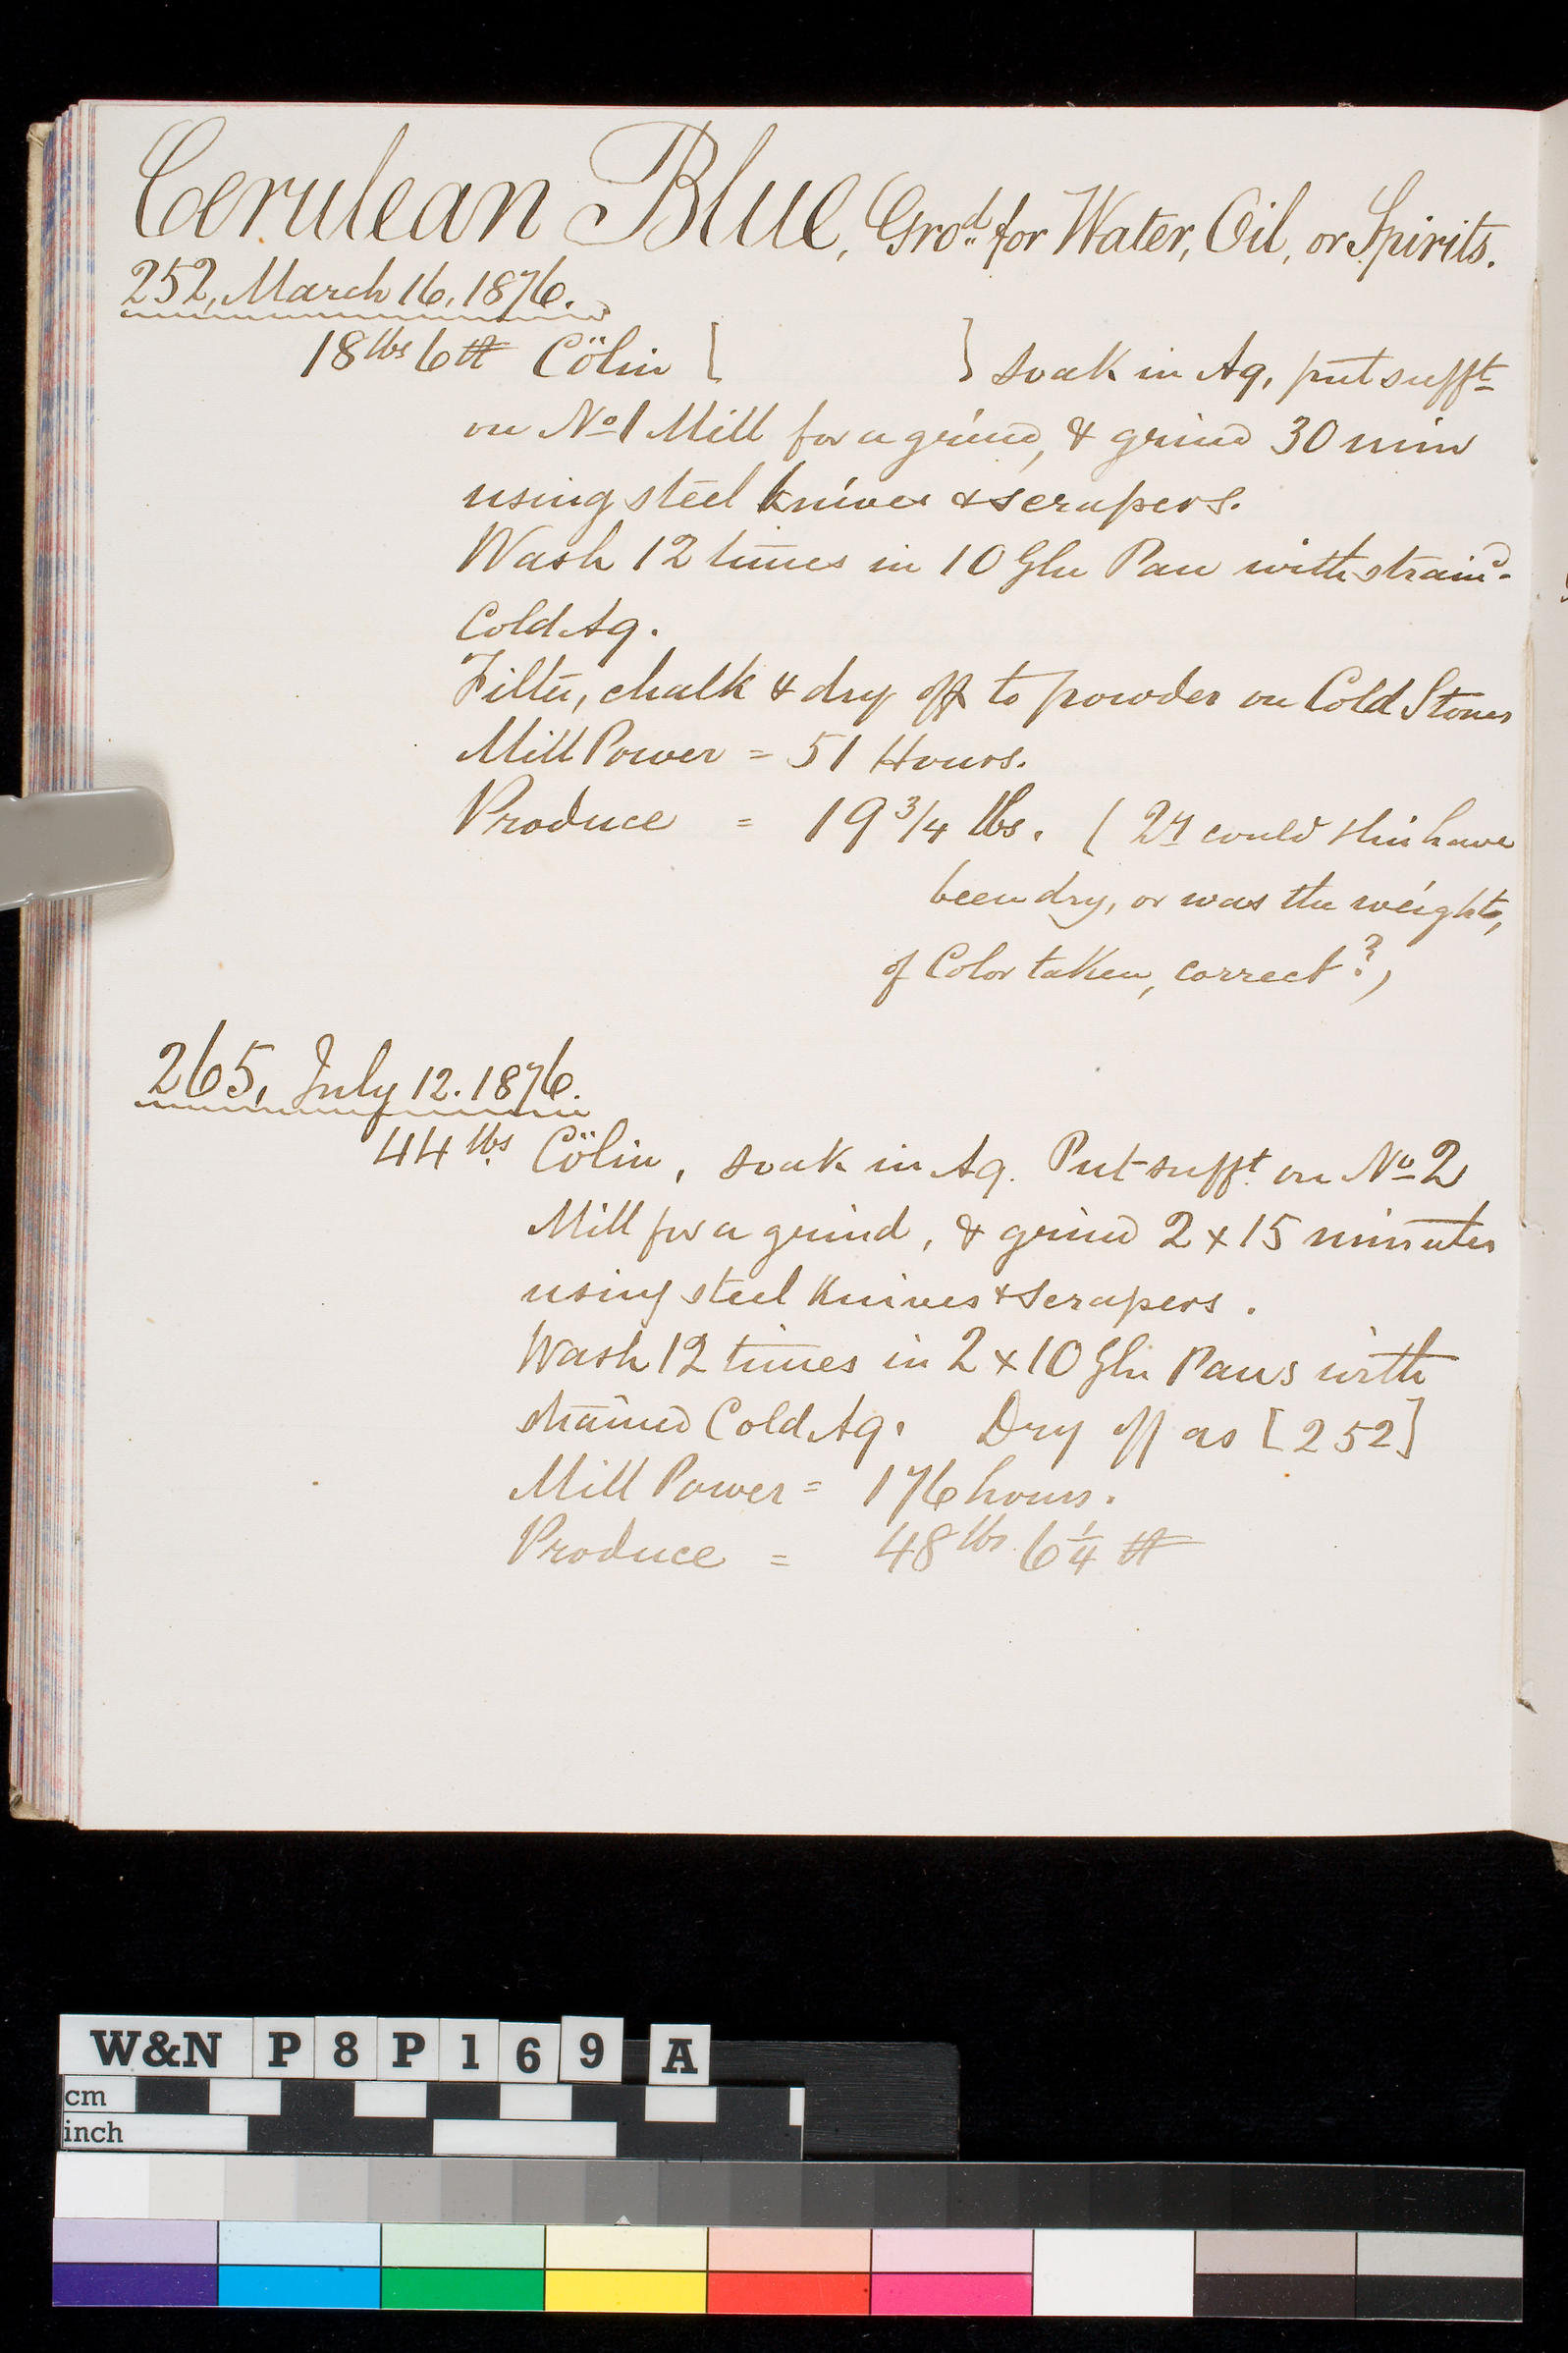 Cerulean Blue, Gro.d for Water, Oil, or Spirits.
252, March 16, 1876.
18 lbs 6 Cölin [ ] soak in Aq, put sufft
on No 1 Mill for a grind, & grind 30 min
using steel knives & scrapers.
Wash 12 times in 10 Gln Pan with straind
Cold Aq.
Filter, chalk & dry off to powder on Cold Stones
Mill Power = 51 Hours.
Produce = 19 3/4 lbs. ( Qy could this have
been dry, or was the weight,
of Color taken, correct?)
265, July 12. 1876.
44 lbs Cölin, soak in Aq. Put sufft on No 2
Mill for a grind, & grind 2 x 15 minutes
using steel knives & scrapers.
Wash 12 times in 2 x 10 Gln Pans with
strained Cold Aq. Dry off as [252]
Mill Power = 176 hours.
Produce = 48 lbs 6 1/4
W&N P8P169 A
cm
inch